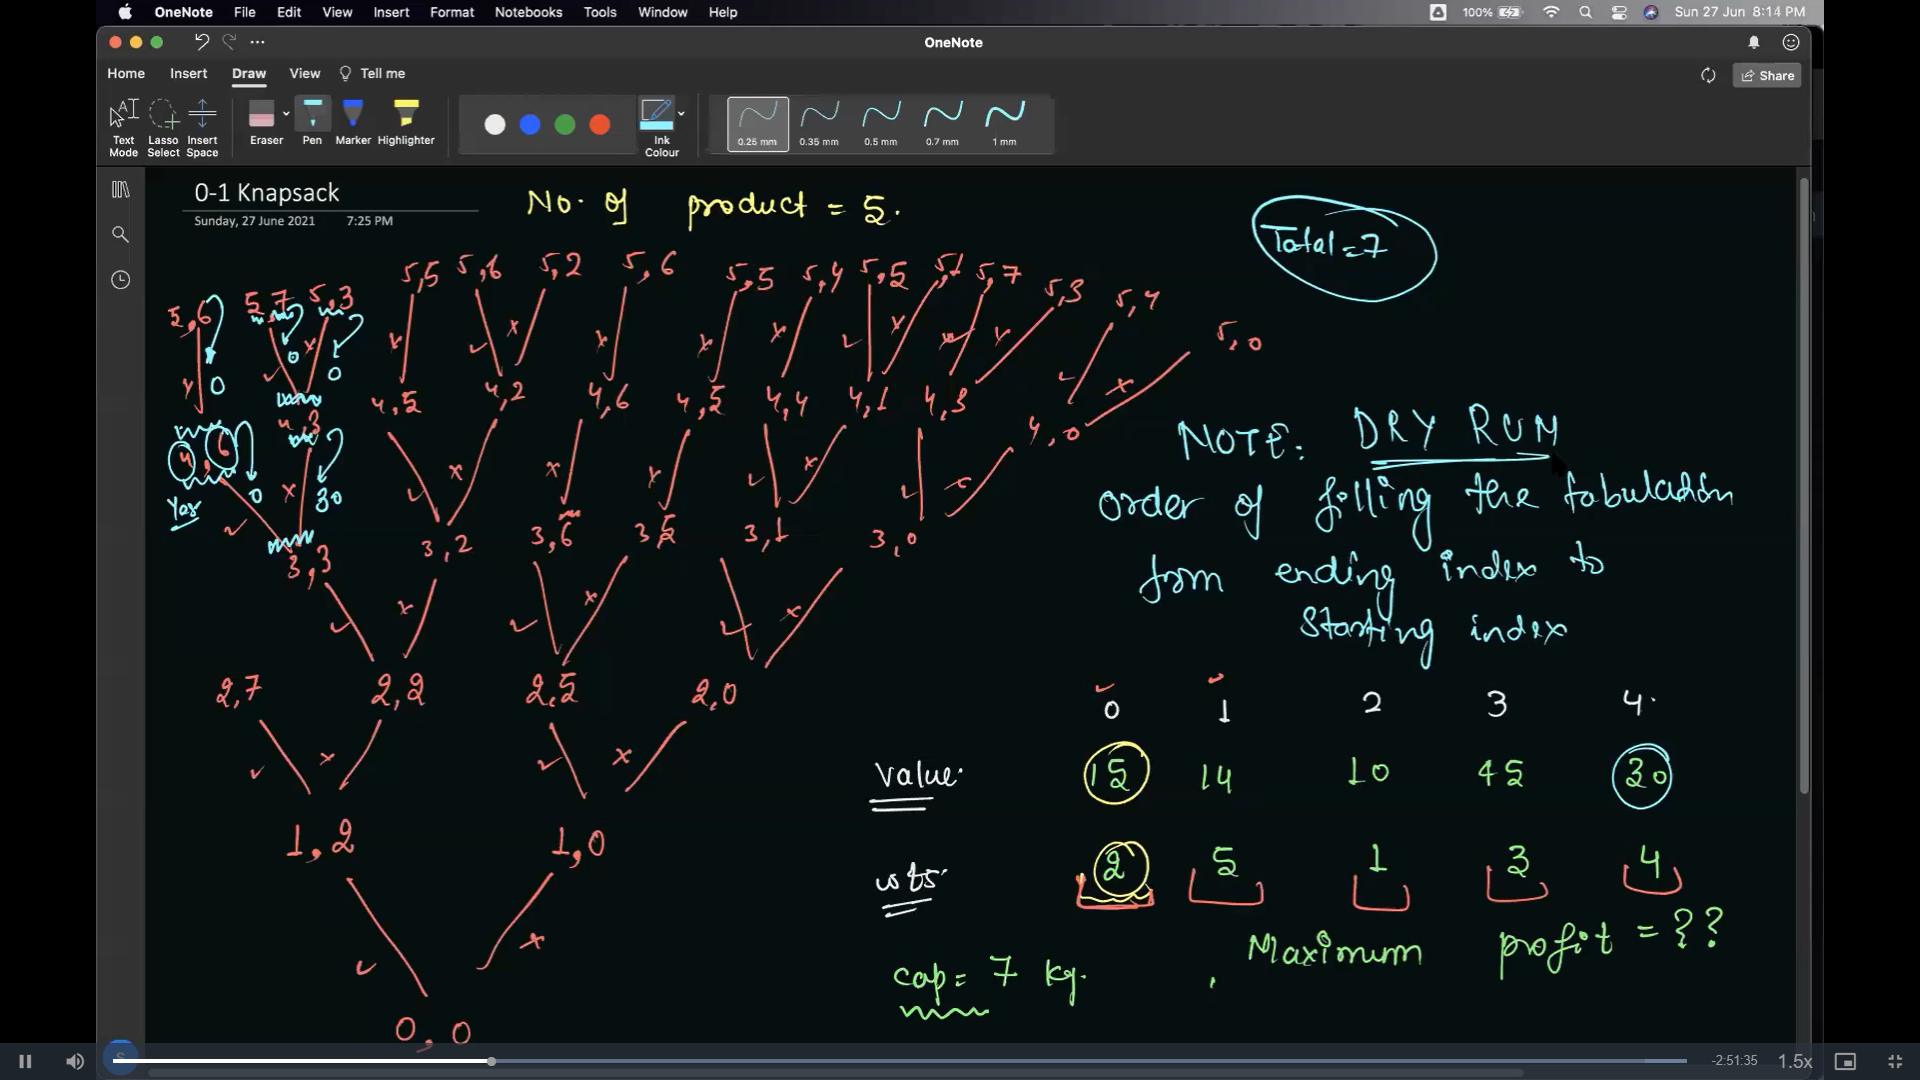 OneNote File Edit View Insert Format Notebooks Tools Window Help 100% Sun 27 Jun 8:14 PM
OneNote
Home Insert Draw View Tell me Share
Text Mode Lasso Select Insert Space Eraser Pen Marker Highlighter Ink Colour 0.25 mm 0.35 mm 0.5 mm 0.7 mm 1 mm
0-1 Knapsack
Sunday, 27 June 2021 7:25 PM
No. of product = 5.
Total = 7
5,6 5,7 5,3 5,5 5,6 5,2 5,6 5,5 5,4 5,5 5,1 5,7 5,3 5,4 5,0
0 0 0
4,6 4,3 4,5 4,2 4,6 4,5 4,4 4,1 4,3 4,0
Yes 0 30
3,3 3,2 3,6 3,5 3,1 3,0
2,7 2,2 2,5 2,0
1,2 1,0
0,0
NOTE: DRY RUN
order of filling the tabulation
from ending index to
starting index
0 1 2 3 4.
Value. 15 14 10 45 30
wts. 2 5 1 3 4
cap = 7 kg. , Maximum profit = ??
-2:51:35 1.5x